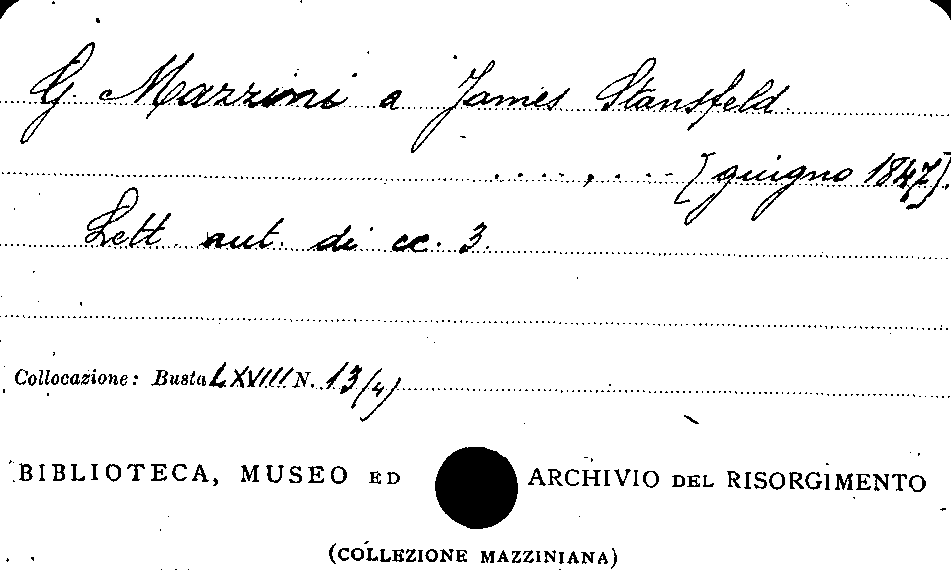 G. Mazzini a James Stansfeld
...., ... [giugno 1847].
Lett. aut. di cc. 3.
Collocazione: Busta LXVIII N. 13/4)
BIBLIOTECA, MUSEO ED ARCHIVIO DEL RISORGIMENTO
(COLLEZIONE MAZZINIANA)